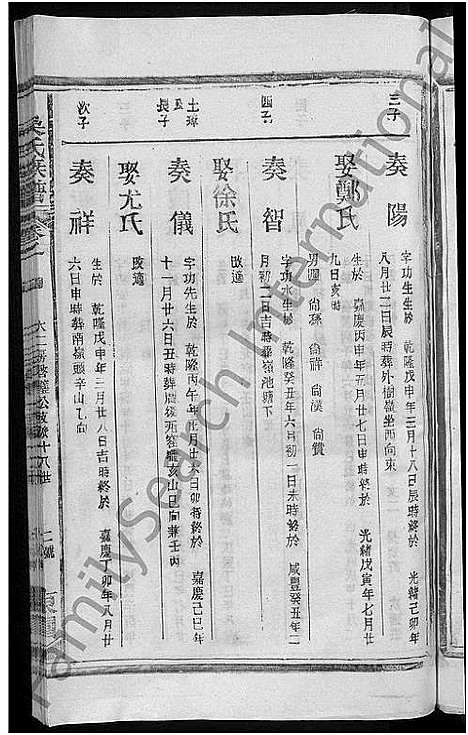 三子
奏陽
字功生生於 乾隆戊申年三月十八日辰時終於 光緒己卯年
八月廿二日辰時葬外樹嶺坐西向東
娶鄭氏
生於 嘉慶丙申年五月廿七日申時終於 光緒戊寅年七月廿
九日亥時
男 尚孫 尚祥 尚漢 尚贊
四子
奏智
字功水生於 乾隆癸丑年六月初一日未時終於 咸豐癸丑年二
月初二日吉時葬嶺池塘下
娶徐氏
改適
士璋
長子
奏儀
字功先生於 乾隆丙午年正月廿六日卯時終於 嘉慶己巳年
十一月廿六日丑時葬 後西 亥山巳向兼壬丙
娶尤氏
改適
次子
奏祥
生於 乾隆戊申年二月廿八日吉時終於 嘉慶丁卯年八月廿
六日申時葬南嶺頭辛山乙向
吳氏族譜
卷之一
十八世
FamilySearch International